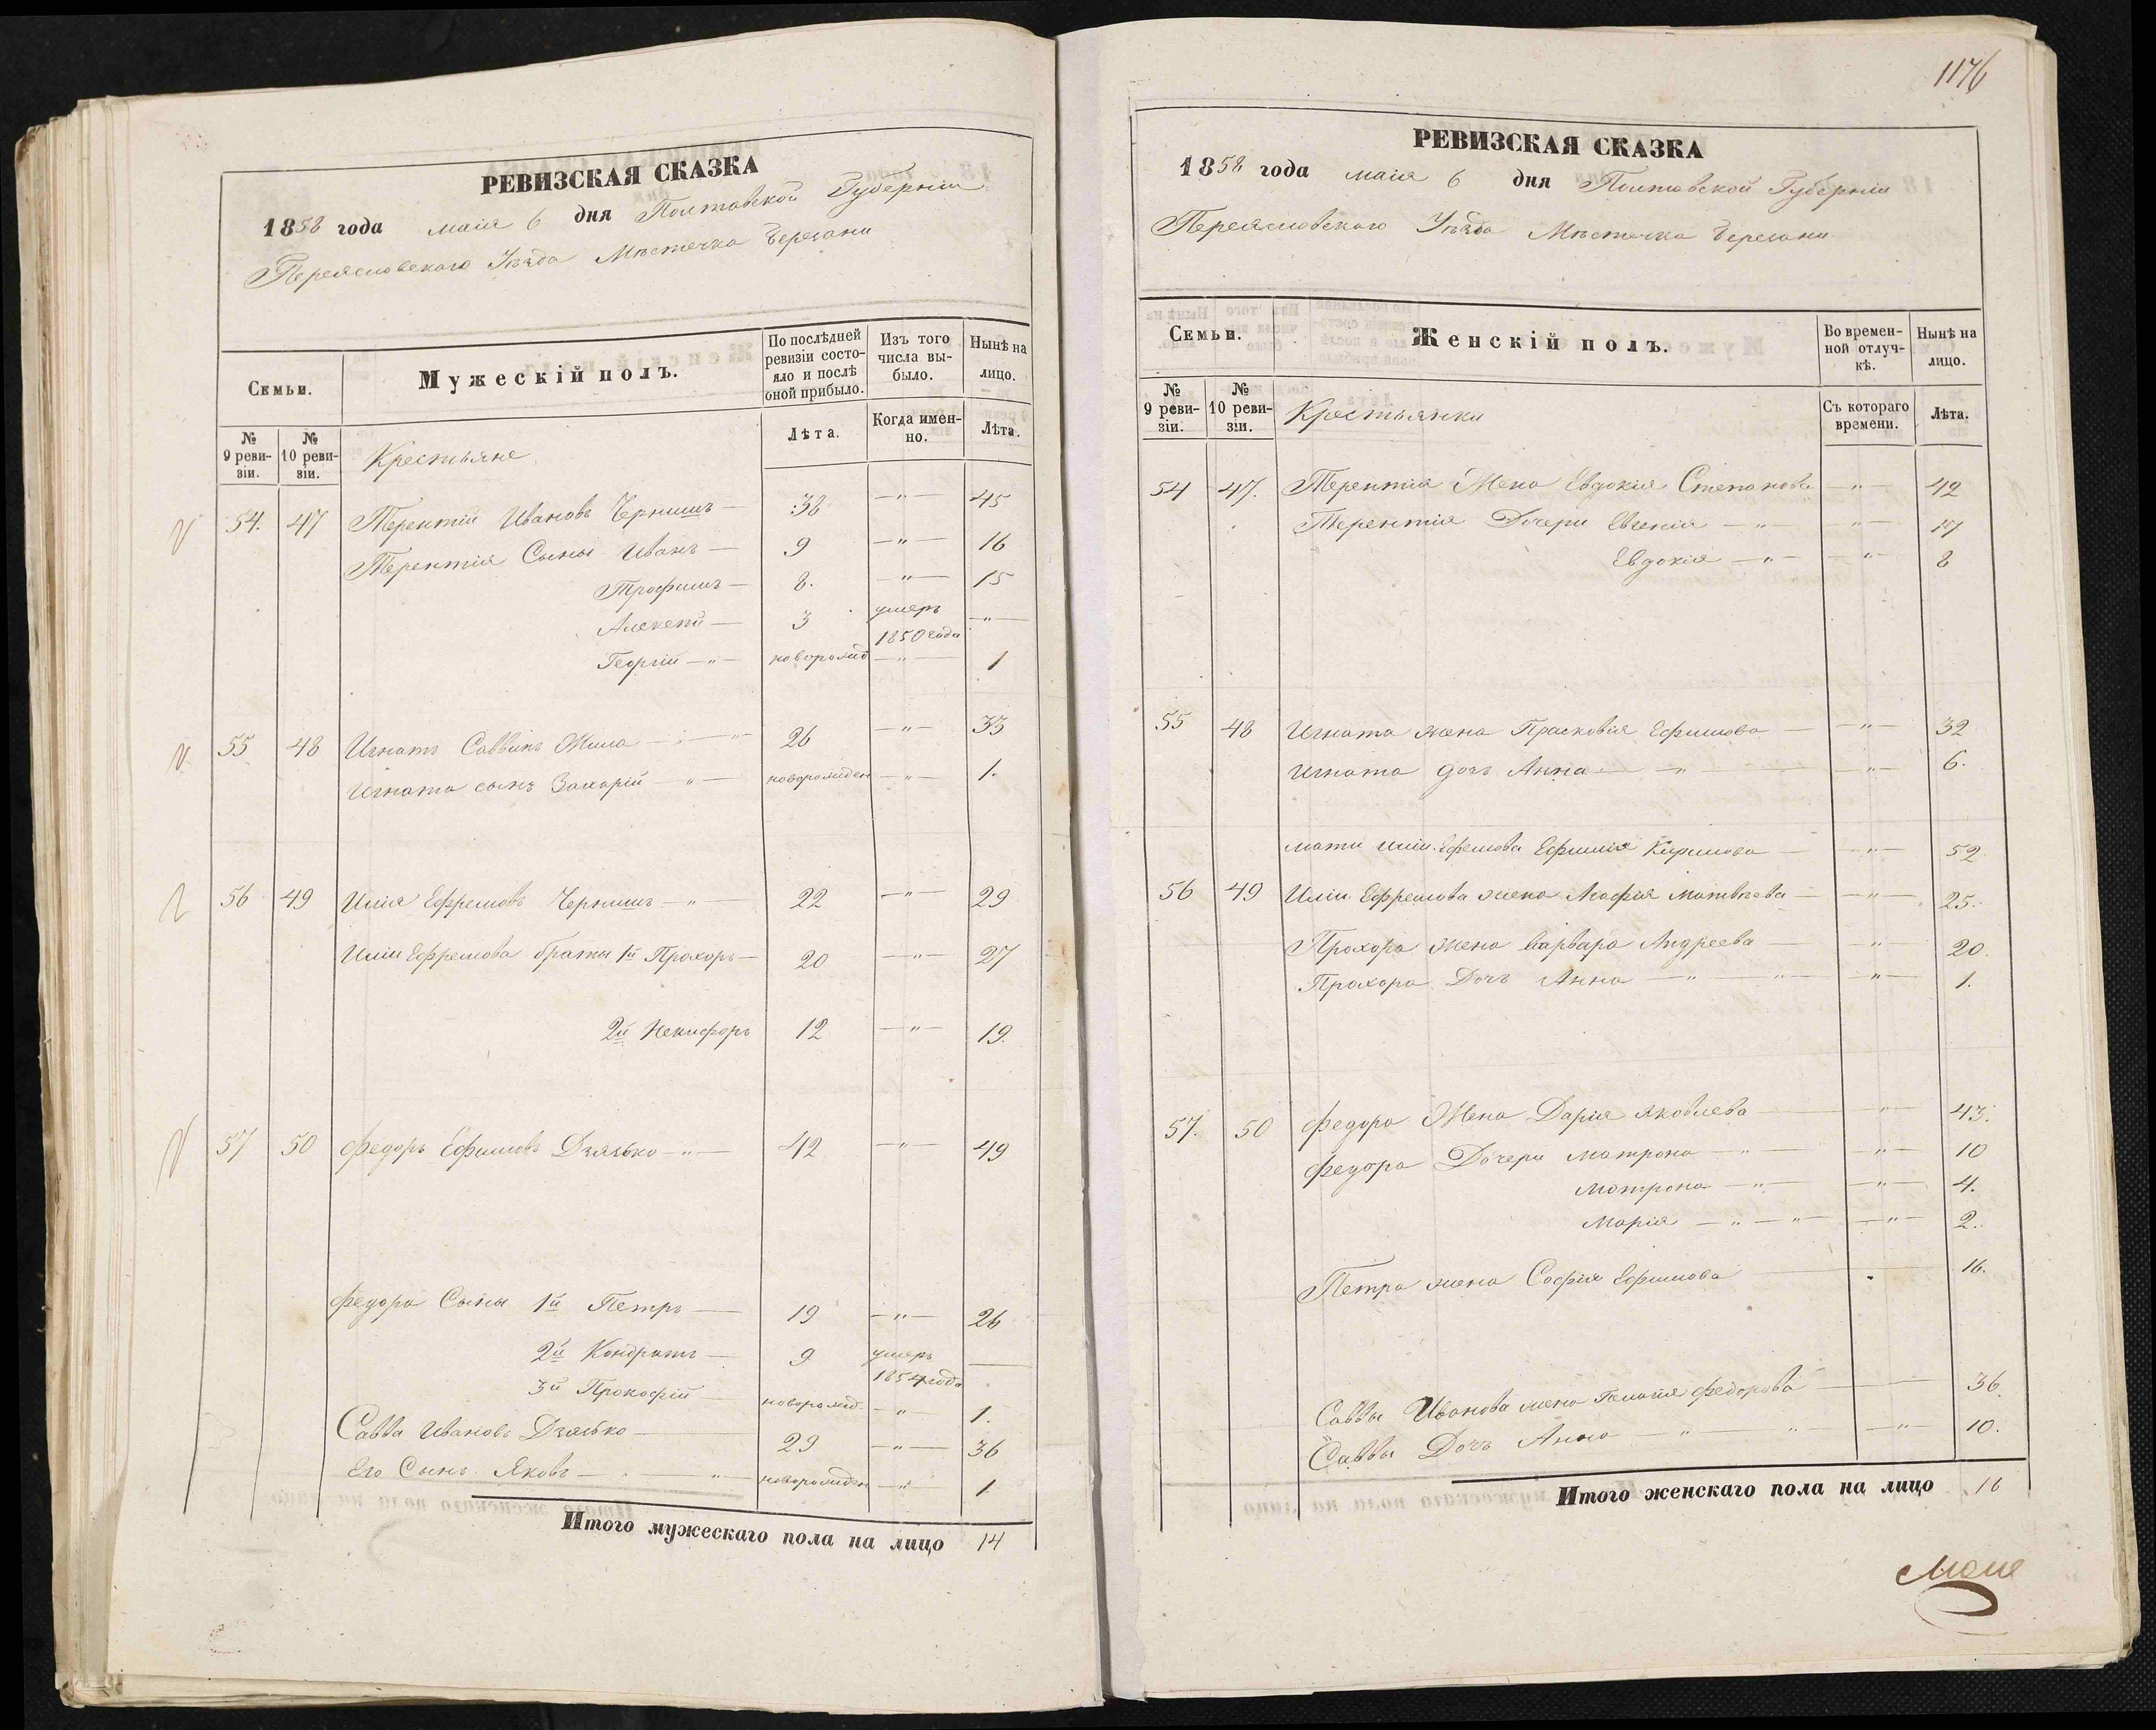 РЕВИЗСКАЯ СКАЗКА
1858 года маія 6 дня Полтавской Губерніи
Переясловскаго Уѣзда Мѣстечка Березани
Семьи.
Мужескій полъ.
По послѣдней ревизіи состояло и послѣ оной прибыло.
Изъ того числа выбыло.
Нынѣ на лицо.
№ 9 ревизіи.
№ 10 ревизіи.
Крестьяне
Лѣта.
Когда именно.
Лѣта.
54. 47 Терентій Ивановъ Чернишъ — 38 — " — 45
Терентія Сыны Иванъ — 9 — " — 16
Трофимъ — 8. — " — 15
Алексей — 3 умеръ 1850 года — " —
Георгій — " — новорожд — " — 1
55 48 Игнатъ Саввинъ Жила — " — 26 — " — 33
Игната сынъ Захарій — " — новорожден — " — 1.
56 49 Илія Ефремовъ Чернишъ — " — 22 — " — 29
Иліи Ефремова браты 1й Прохоръ — 20 — " — 27
2й Некифоръ 12 — " — 19.
57 50 Федоръ Ефимовъ Дзязько — " — 42 — " — 49
Федора Сыны 1й Петръ — 19 — " — 26
2й Кондратъ — 9 умеръ 1854 года —
3й Прокофій — новорожд. — " — 1.
Савва Ивановъ Дзязько — 29 — " — 36
Его Сынъ Яковъ — " — новорожден — " — 1
Итого мужескаго пола на лицо 14
1176
РЕВИЗСКАЯ СКАЗКА
1858 года маія 6 дня Полтавской Губерніи
Переясловскаго Уѣзда Мѣстечка Березани
Семьи.
Женскій полъ.
Во временной отлучкѣ.
Нынѣ на лицо.
№ 9 ревизіи.
№ 10 ревизіи.
Крестьянки
Съ котораго времени.
Лѣта.
54 47. Терентія Жена Евдокія Степанова — " — 42
Терентія Дочери Евгенія — " — " — 17
Евдокія — " — " — 8
55 48 Игната жена Прасковія Ефимова — " — 32
Игната дочь Анна — " — " — 6.
мати Иліи Ефремова Ефимія Каримова — " — 52
56 49 Иліи Ефремова жена Агафія Матвѣева — " — 25.
Прохора жена Варвара Андреева — " — 20.
Прохора Дочь Анна — " — " — " — 1.
57. 50 Федора Жена Дарія Яковлева — " — 43.
Федора Дочери Матрона — " — " — 10
Матрона — " — " — 4.
Марія — " — " — " — 2.
Петра жена Софія Ефимова — 16.
Саввы Иванова жена Галагія Федорова — 36.
Саввы Дочь Анна — " — " — " — 10.
Итого женскаго пола на лицо 16